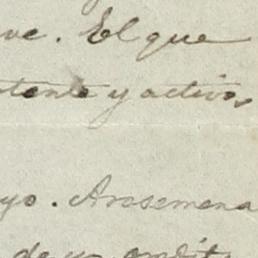 ve. El que
tente y activo,
yo. Arosemena
de un